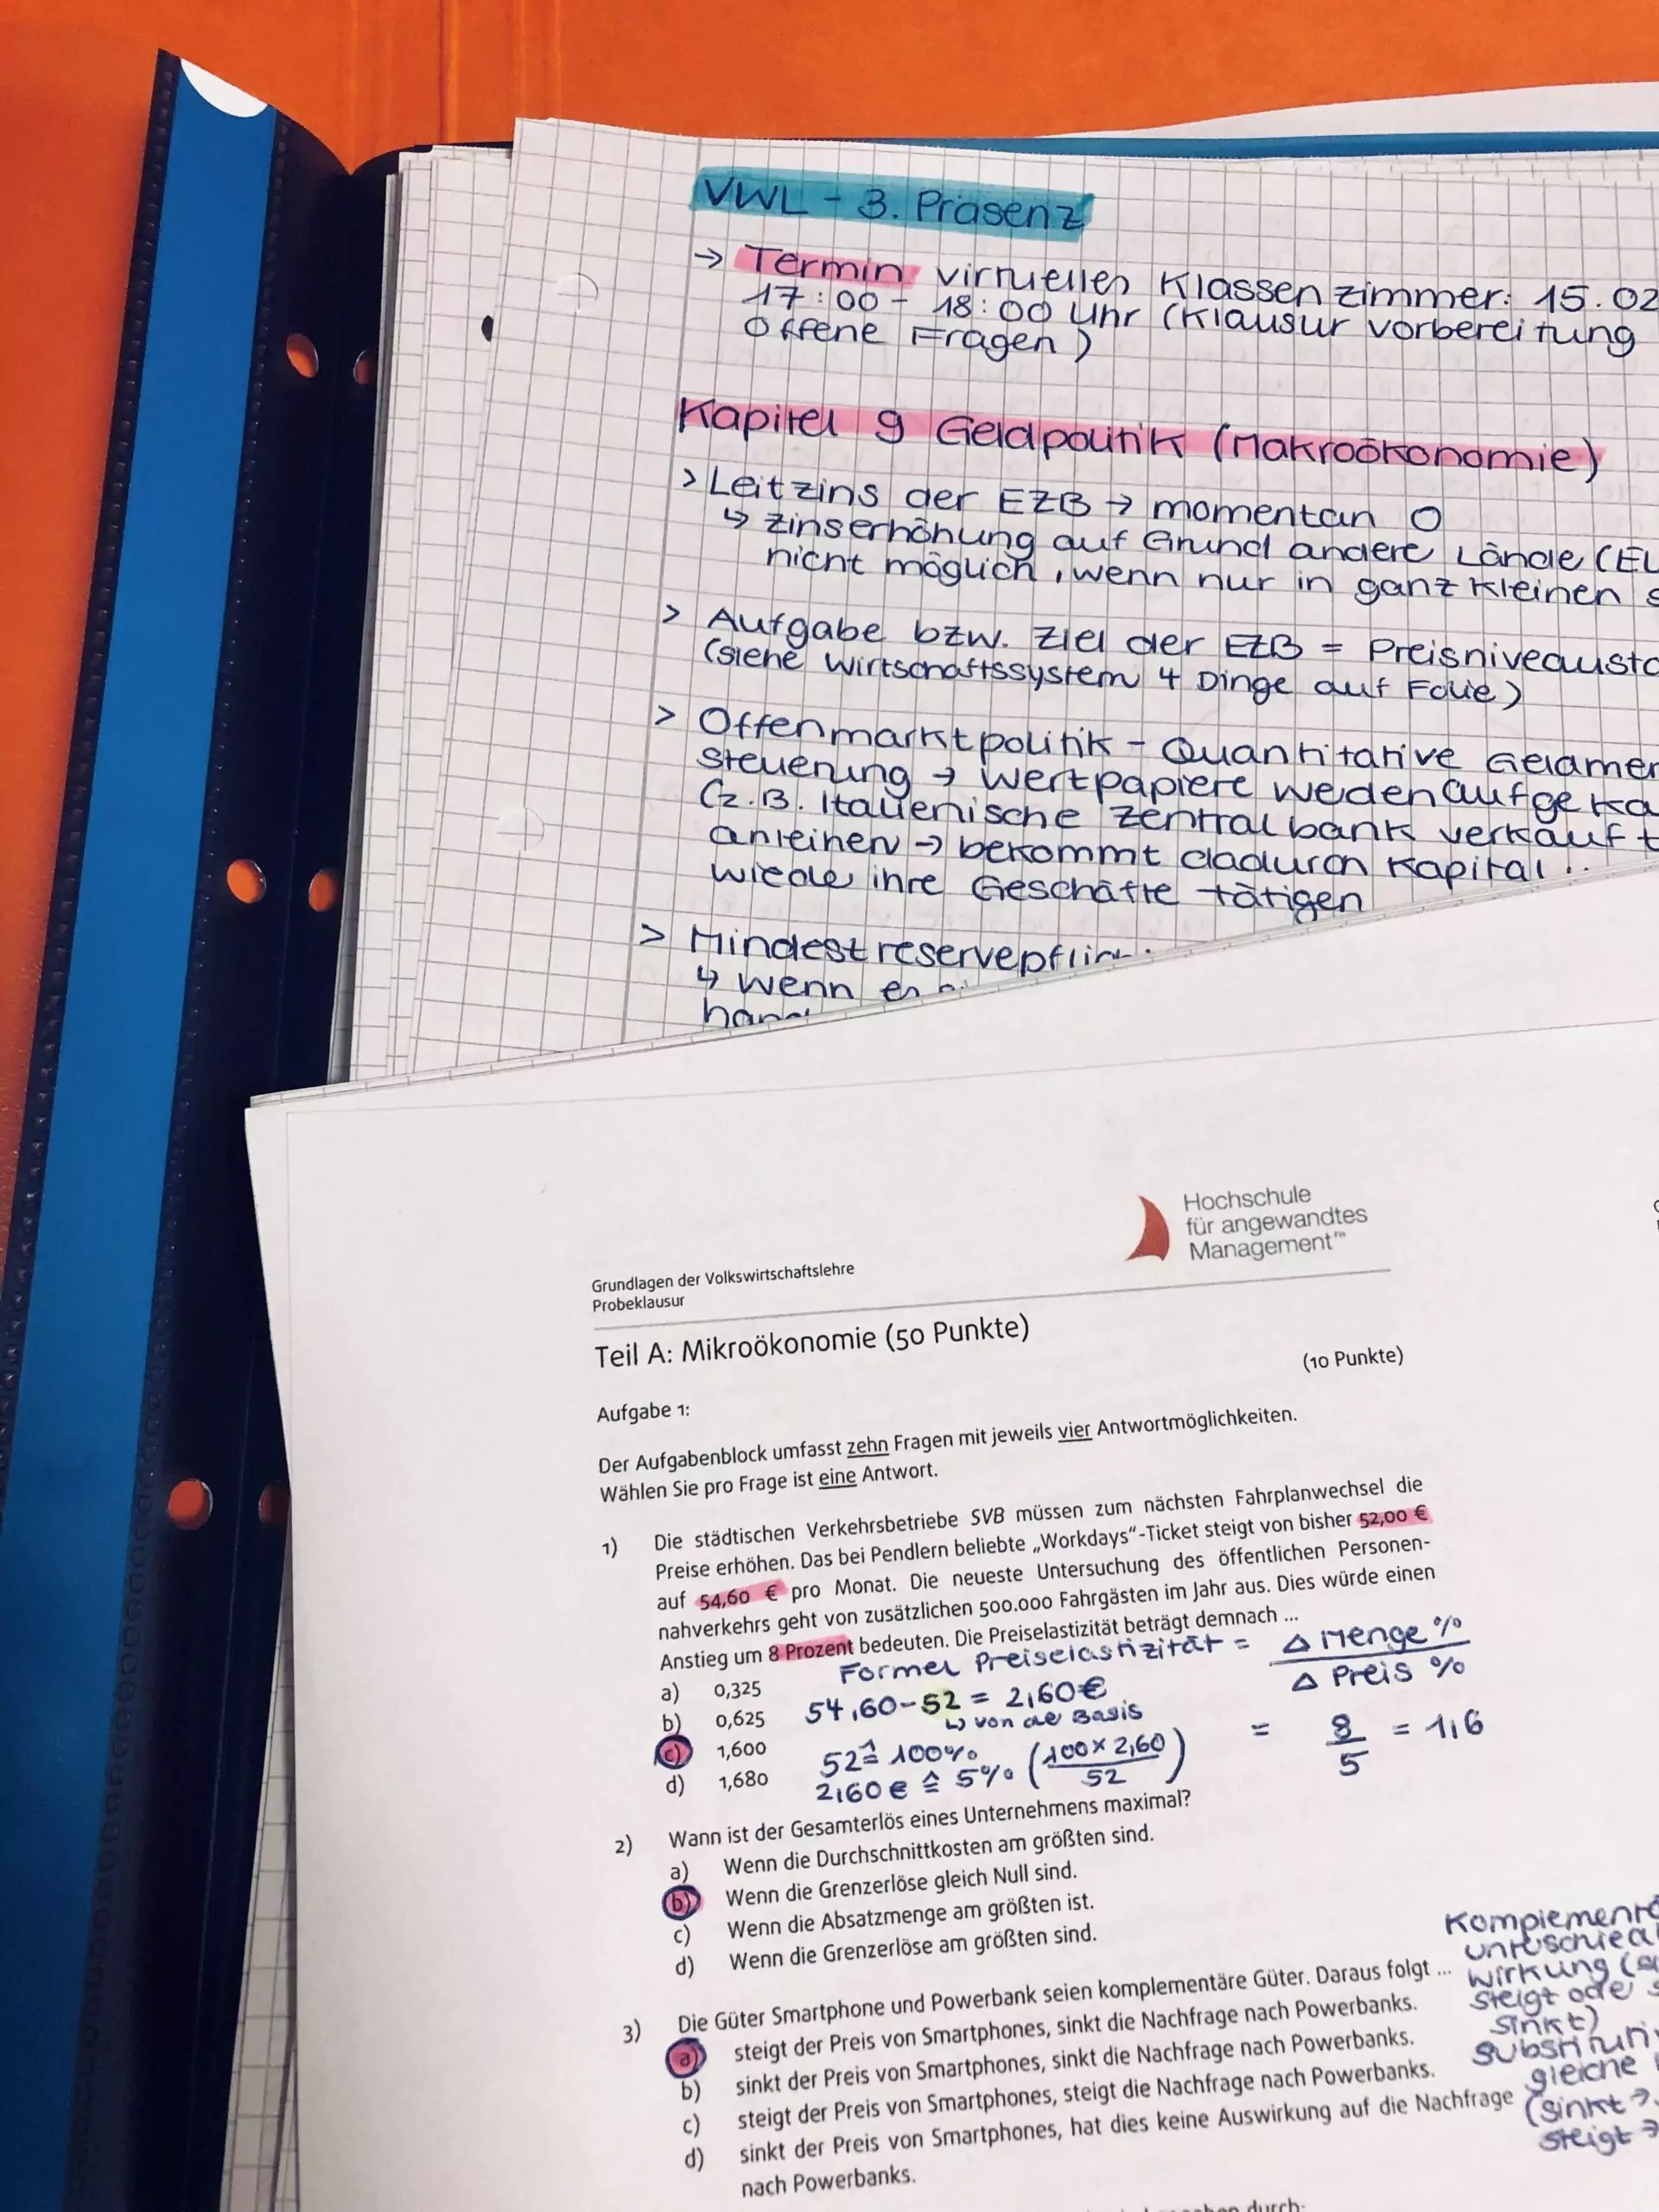 VWL - 3. Präsenz
→ Termin virtuelles Klassenzimmer: 15.02
17:00 - 18:00 Uhr (Klausurvorbereitung
Offene Fragen)
Kapitel 9 Geldpolitik (Makroökonomie)
> Leitzins der EZB → momentan 0
↳ Zinserhöhung auf Grund andere Lände (EU
nicht möglich, wenn nur in ganz kleinen s
> Aufgabe bzw. Ziel der EZB = Preisniveausta
(siehe Wirtschaftssystem 4 Dinge auf Folie)
> Offenmarktpolitik - Quantitative Geldmen
Steuerung → Wertpapiere weden aufgeka
(z.B. Italienische Zentralbank verkauft
anleihen → bekommt dadurch Kapital ..
wiede ihre Geschäfte tätigen
> Mindestreservepflich
↳ wenn es
Hochschule
für angewandtes
Management™
Grundlagen der Volkswirtschaftslehre
Probeklausur
Teil A: Mikroökonomie (50 Punkte)
(10 Punkte)
Aufgabe 1:
Der Aufgabenblock umfasst zehn Fragen mit jeweils vier Antwortmöglichkeiten.
Wählen Sie pro Frage ist eine Antwort.
1) Die städtischen Verkehrsbetriebe SVB müssen zum nächsten Fahrplanwechsel die
Preise erhöhen. Das bei Pendlern beliebte „Workdays“-Ticket steigt von bisher 52,00 €
auf 54,60 € pro Monat. Die neueste Untersuchung des öffentlichen Personen-
nahverkehrs geht von zusätzlichen 500.000 Fahrgästen im Jahr aus. Dies würde einen
Anstieg um 8 Prozent bedeuten. Die Preiselastizität beträgt demnach ...
Formel Preiselastizität = Δ Menge % / Δ Preis %
a) 0,325
b) 0,625
c) 1,600
d) 1,680
54,60-52 = 2,60€
↳ von de Basis
52 ≙ 100%
2,60€ ≙ 5% (100 x 2,60 / 52)
= 8/5 = 1,6
2) Wann ist der Gesamterlös eines Unternehmens maximal?
a) Wenn die Durchschnittkosten am größten sind.
b) Wenn die Grenzerlöse gleich Null sind.
c) Wenn die Absatzmenge am größten ist.
d) Wenn die Grenzerlöse am größten sind.
3) Die Güter Smartphone und Powerbank seien komplementäre Güter. Daraus folgt ...
a) steigt der Preis von Smartphones, sinkt die Nachfrage nach Powerbanks.
b) sinkt der Preis von Smartphones, sinkt die Nachfrage nach Powerbanks.
c) steigt der Preis von Smartphones, steigt die Nachfrage nach Powerbanks.
d) sinkt der Preis von Smartphones, hat dies keine Auswirkung auf die Nachfrage
nach Powerbanks.
Komplementä
wirkung
steigt ode s
sinkt)
Substituti
gleiche
(sinkt →
steigt →
durch: